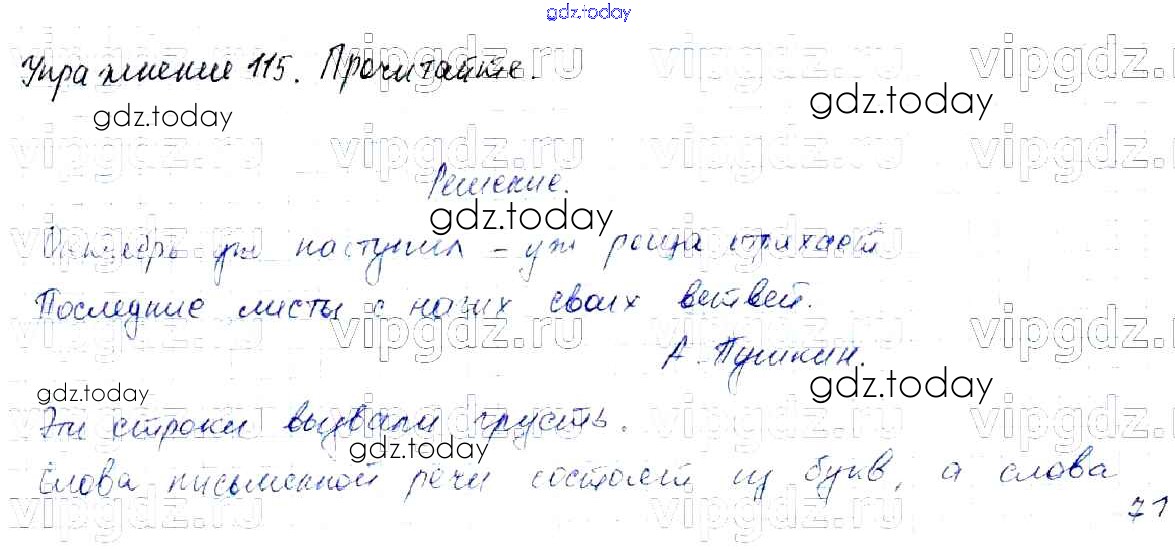 gdz.today
Упражнение 115. Прочитайте.
vipgdz.ru vipgdz.ru vipgdz.ru vipgdz.ru
gdz.today gdz.today
vipgdz.ru vipgdz.ru vipgdz.ru vipgdz.ru
Решение.
gdz.today
vipgdz.ru vipgdz.ru vipgdz.ru vipgdz.ru
Октябрь уж наступил – уж роща отряхает
Последние листы с нагих своих ветвей.
vipgdz.ru vipgdz.ru vipgdz.ru vipgdz.ru
А. Пушкин.
gdz.today gdz.today
vipgdz.ru vipgdz.ru vipgdz.ru vipgdz.ru
Эти строки вызвали грусть.
gdz.today
Слова письменной речи состоят из букв, а слова
vipgdz.ru vipgdz.ru vipgdz.ru vipgdz.ru
71